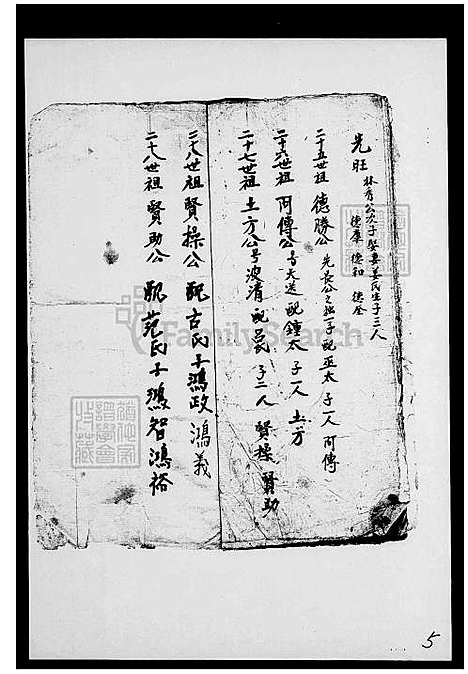 光旺 林秀公次子娶妻姜氏生子三人
德摩 德和 德全
二十五世祖 德勝公 先長公之独子 配巫太 子一人 阿傳
二十六世祖 阿傳公 号天送 配鍾太 子一人 土方
二十七世祖 土方公号波清 配呂氏 子二人 賢操 賢助
二十八世祖 賢操公 配古氏子鴻政 鴻義
二十八世祖 賢助公 配范氏子鴻智鴻裕
FamilySearch
5